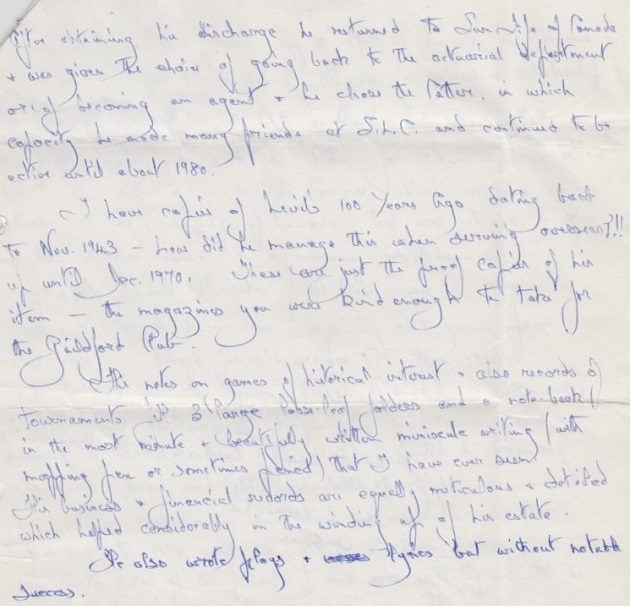 After obtaining his discharge he returned to Sun Life of Canada
+ was given the choice of going back to the actuarial department
or of becoming an agent + he chose the latter, in which
capacity he made many friends at S.L.C. and continued to be
active until about 1980.
I have copies of Levi's 100 Years Ago dating back
to Nov. 1943 – how did he manage this when serving overseas?!!
up until Dec. 1970. These are just the proof copies of his
item – the magazines you were kind enough to take for
the Guildford Club.
The notes on games of historical interest + also records of
Tournaments is 3 large loose-leaf folders and a note-book (
in the most minute + beautifully written miniscule writing (with
mapping pen or sometimes pencil) that I have ever seen
His business + financial records are equally meticulous + detailed
which helped considerably in the winding up of his estate.
He also wrote plays + lyrics but without notable
success.